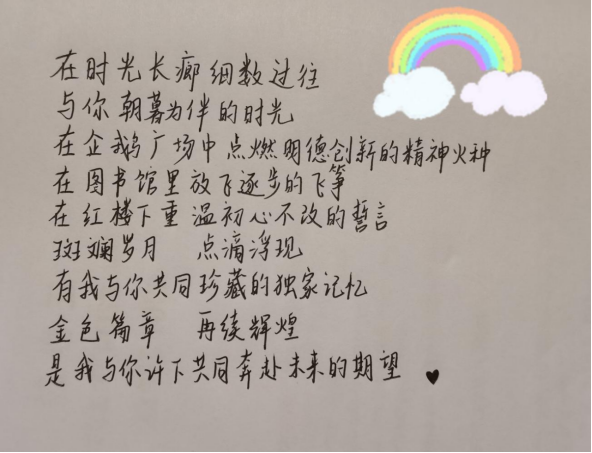 在时光长廊细数过往
与你朝暮为伴的时光
在企鹅广场中点燃明德创新的精神火种
在图书馆里放飞逐步的飞筝
在红楼下重温初心不改的誓言
斑斓岁月 点滴浮现
有我与你共同珍藏的独家记忆
金色篇章 再续辉煌
是我与你许下共同奔赴未来的期望